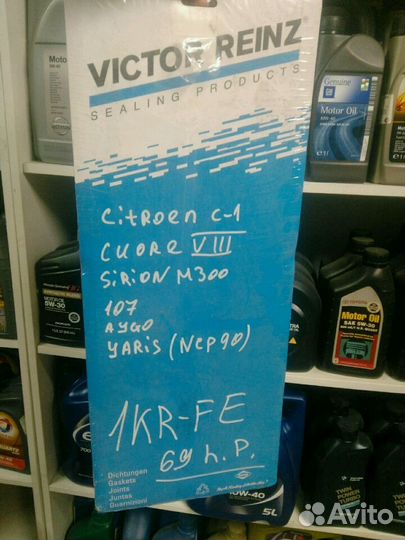 VICTOR REINZ
SEALING PRODUCTS
Citroen C-1
CUORE VIII
SiRiON M300
107
AYGO
YARiS (NCP90)
1KR-FE
69 h.p.
Dichtungen
Gaskets
Joints
Juntas
Guarnizioni
Motor Oil
Genuine
Motor Oil
MOTOR OIL
5W-30
TOYOTA
Motor Oil
SAE 5W-30
TOTAL
10W-40
5L
TWIN
POWER
TURBO
Avito